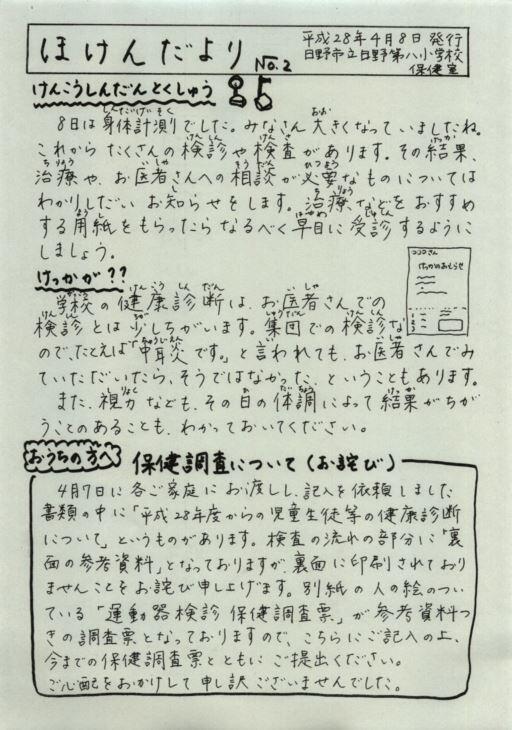 ほけんだより No.2
平成28年4月8日 発行
日野市立日野第八小学校
保健室
けんこうしんだんとくしゅう
8日は身体計測でした。みなさん大きくなっていましたね。
これから たくさんの検診や検査があります。その結果、
治療や、お医者さんへの相談が必要なものについては
わかりしだい お知らせをします。治療などをおすすめ
する用紙をもらったら なるべく早目に受診するように
しましょう。
けっかが??
学校の健康診断は、お医者さんでの
検診とは少しちがいます。集団での検診な
ので、たとえば「中耳炎です。」と言われても、お医者さんでみ
ていただいたら、そうではなかった、ということもあります。
また、視力なども、その日の体調によって結果がちが
うことのあることも、わかっておいてください。
けっかのおしらせ
おうちの方へ 保健調査について(お詫び)
4月7日に各ご家庭にお渡しし、記入を依頼しました
書類の中に「平成28年度からの児童生徒等の健康診断
について」というものがあります。検査の流れの部分に「裏
面の参考資料」となっておりますが、裏面に印刷されており
ませんことをお詫び申し上げます。別紙の人の絵のつい
ている「運動器検診 保健調査票」が参考資料つ
きの調査票となっておりますので、こちらにご記入の上、
今までの保健調査票とともに ご提出ください。
ご心配をおかけして 申し訳ございませんでした。